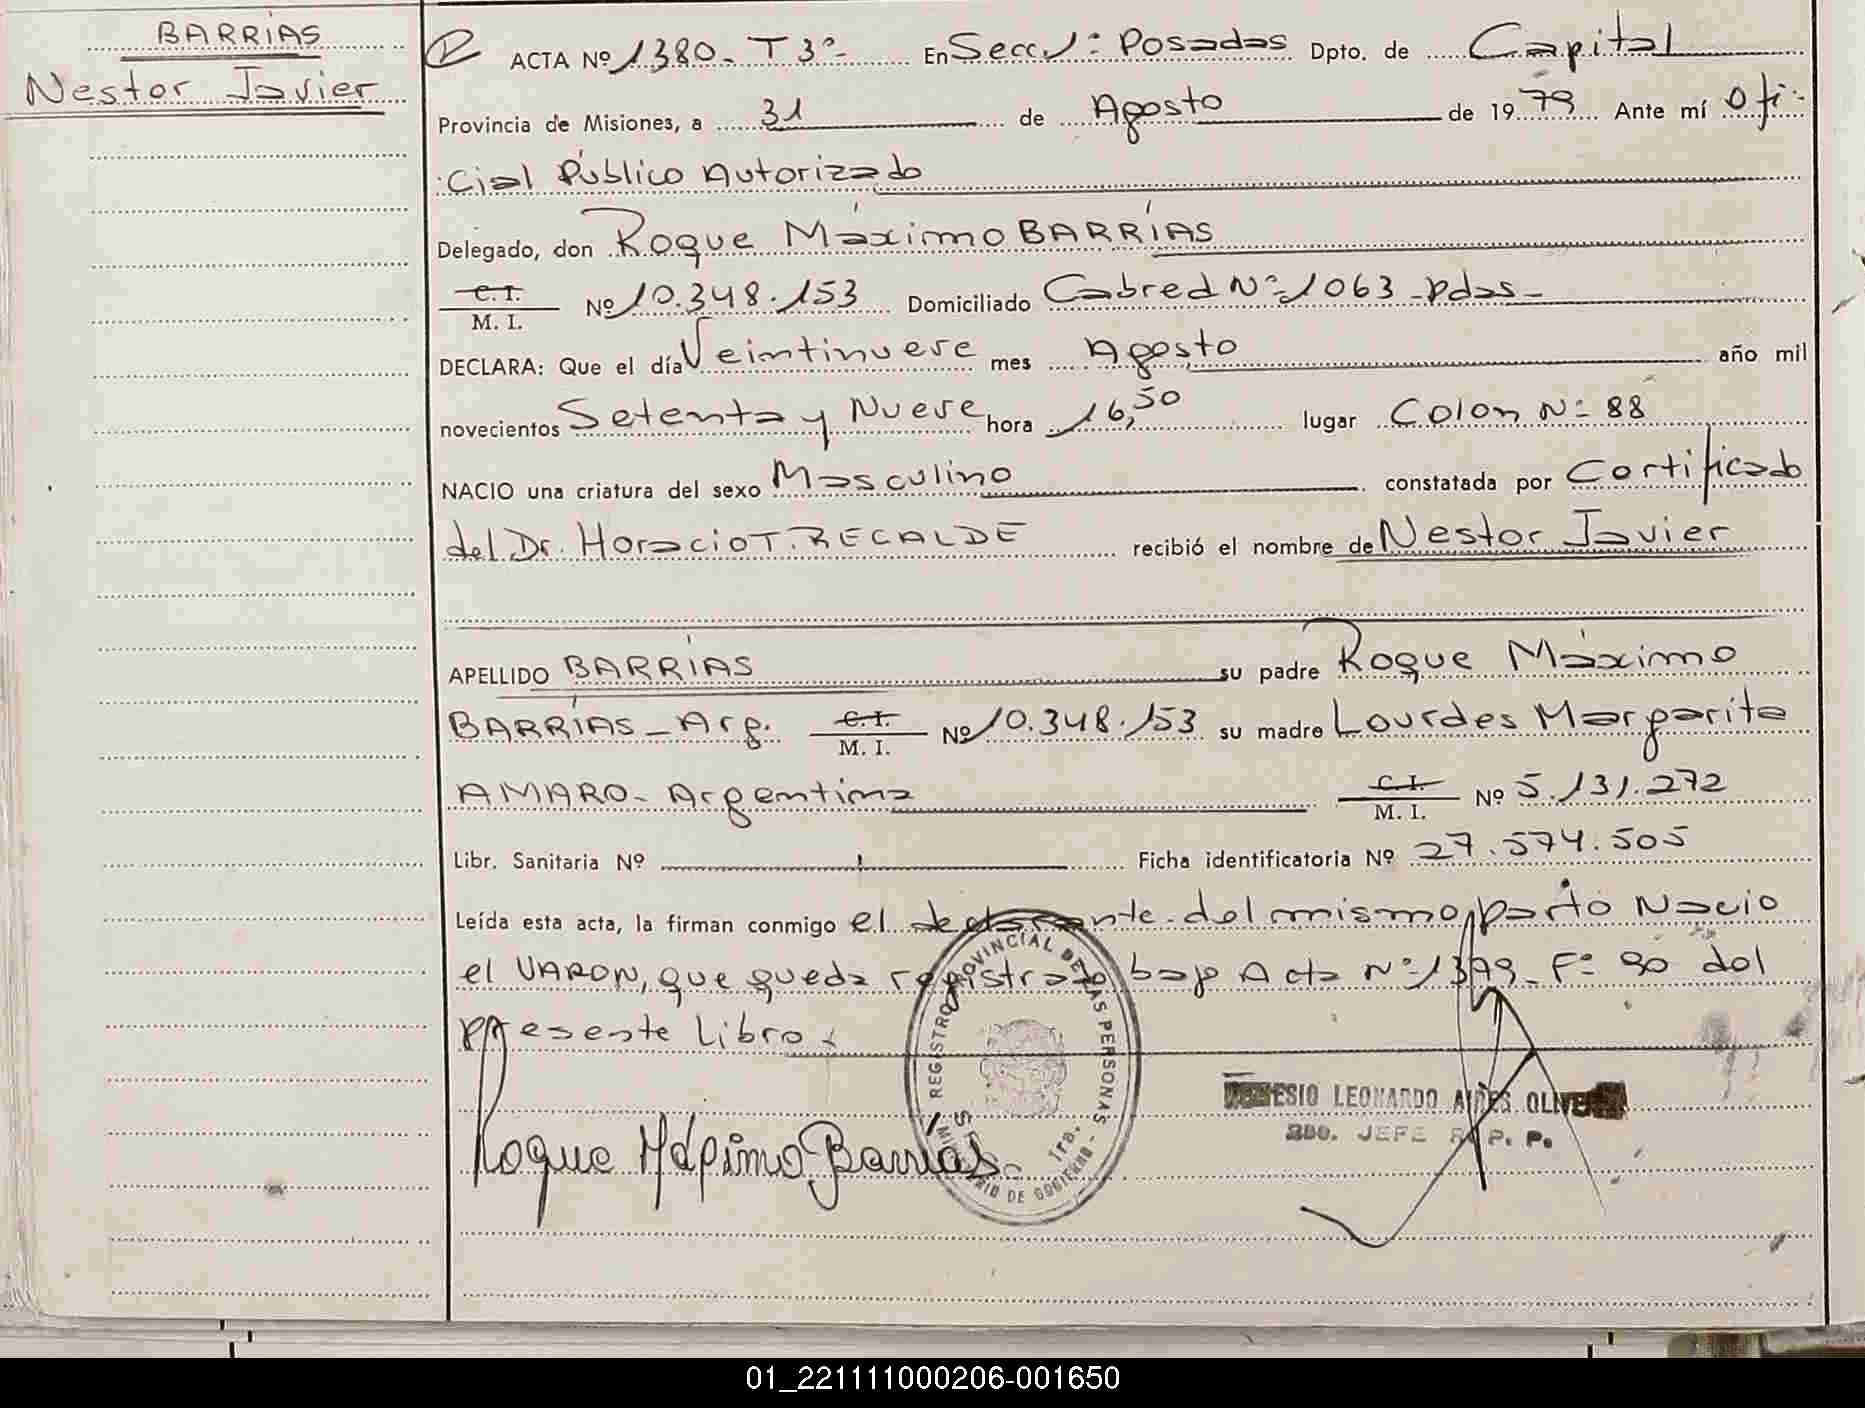 BARRÍAS
Nestor Javier
ACTA Nº 1380 - T 3º - En Secc 1ª Posadas Dpto. de Capital
Provincia de Misiones, a 31 de Agosto de 1979 Ante mí Ofi-
cial Público Autorizado
Delegado, don Roque Máximo BARRÍAS
C. I. M. I. Nº 10.348.153 Domiciliado Cabred Nº 1063 - pdas -
DECLARA: Que el día Veintinueve mes Agosto año mil
novecientos Setenta y Nueve hora 16,50 lugar Colon Nº 88
NACIO una criatura del sexo Masculino constatada por Certificado
del Dr. Horacio T. RECALDE recibió el nombre de Nestor Javier
APELLIDO BARRÍAS su padre Roque Máximo
BARRÍAS - Arg. C. I. M. I. Nº 10.348.153 su madre Lourdes Margarita
AMARO - Argentina C. I. M. I. Nº 5.131.272
Libr. Sanitaria Nº Ficha identificatoria Nº 27.574.505
Leída esta acta, la firman conmigo el declarante - del mismo parto Nacio
el VARON, que queda registrado bajo Acta Nº 1379 - Fº 90 del
presente Libro
REGISTRO PROVINCIAL DE LAS PERSONAS
SECC 1ra.
MINISTERIO DE GOBIERNO
LEONARDO AIRES OLIVERA
2do. JEFE R. P. P.
Roque Máximo Barrías
01_221111000206-001650